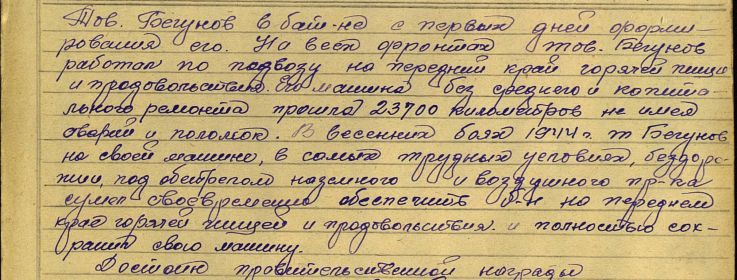 Тов. Бегунов в бат-не с первых дней форми-
рования его. На всех фронтах тов. Бегунов
работал по подвозу на передний край горячей пищи
и продовольствия. Его машина без среднего и капита-
льного ремонта прошла 23700 километров не имея
аварий и поломок. В весенних боях 1944 г. т Бегунов
на своей машине, в самых трудных условиях, бездоро-
жии, под обстрелом наземного и воздушного пр-ка
сумел своевременно обеспечить б-н на переднем
крае горячей пищей и продовольствия. и полностью сох-
ранил свою машину.
Достоин правительственной награды